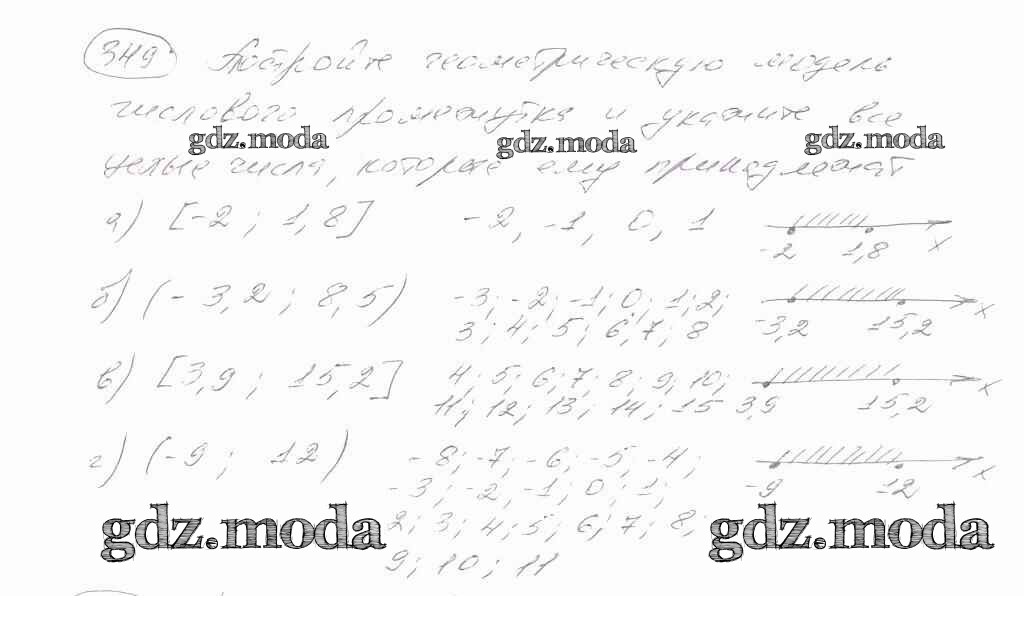 349 Постройте геометрическую модель
числового промежутка и укажите все
gdz.moda gdz.moda gdz.moda
целые числа, которые ему принадлежат
а) [-2 ; 1,8] -2, -1, 0, 1
-2 1,8 x
б) (-3,2 ; 8,5) -3; -2; -1; 0; 1; 2;
3; 4; 5; 6; 7; 8 -3,2 15,2 x
в) [3,9 ; 15,2] 4; 5; 6; 7; 8; 9; 10;
11; 12; 13; 14; 15 3,9 15,2 x
г) (-9 ; 12) -8; -7; -6; -5; -4;
-3; -2, -1; 0; 1; -9 12 x
2; 3; 4; 5; 6; 7; 8;
gdz.moda gdz.moda
9; 10; 11